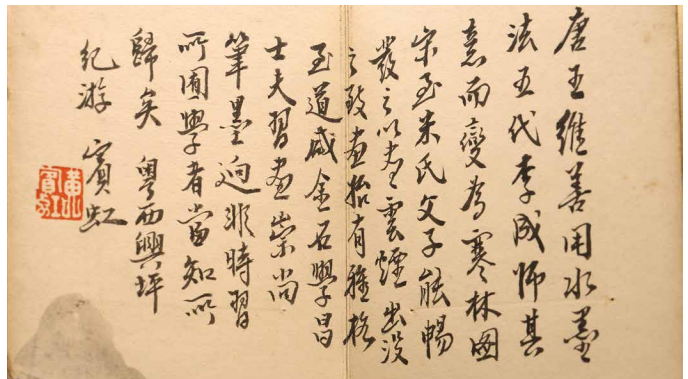 唐王維善用水墨
法五代李成師其
意而變為寒林圖
宋至米氏父子能暢
發之以雲煙出没
之致畫始有雅格
至道咸金石學昌
士夫習畫崇尚
筆墨迥非時習
所囿學者當知所
歸矣 粵西興坪
紀游 賓虹